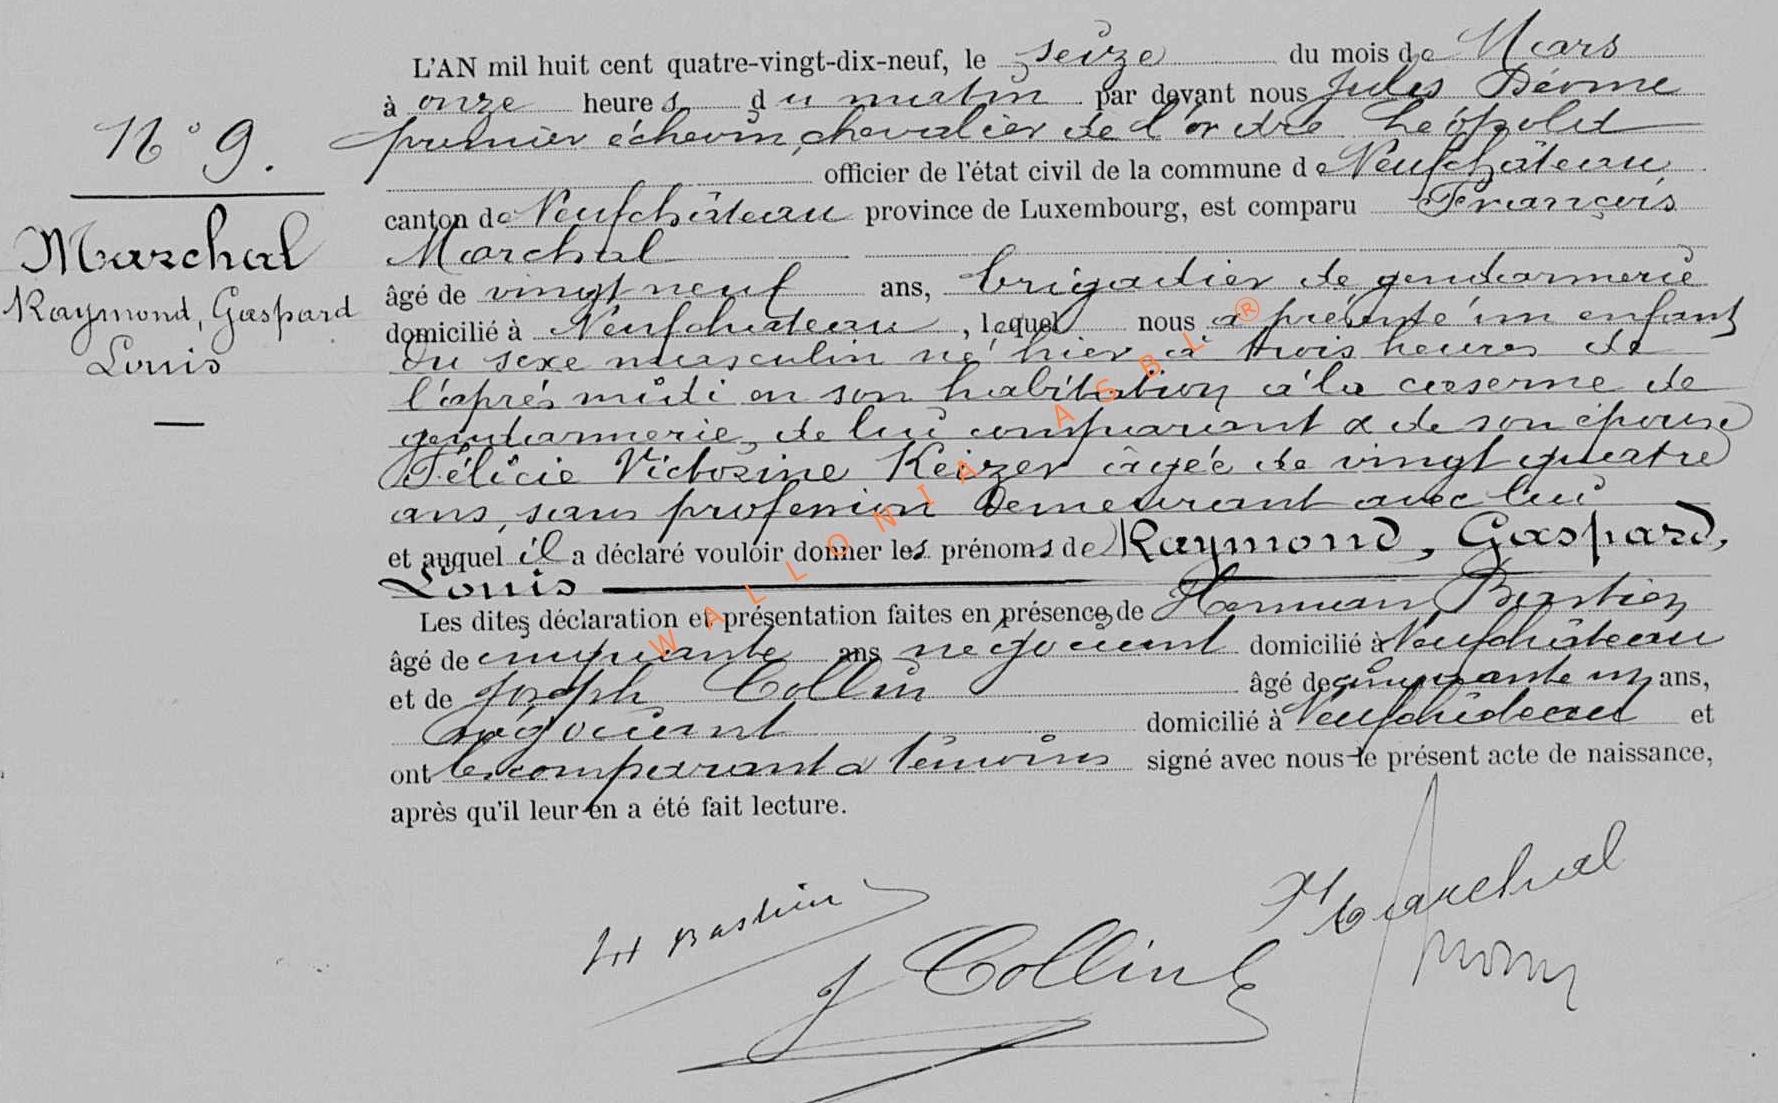 N° 9.
Marchal
Raymond, Gaspard
Louis
L'AN mil huit cent quatre-vingt-dix-neuf, le seize du mois de Mars
à onze heures du matin par devant nous Jules
premier échevin, chevalier de l'ordre Léopold
officier de l'état civil de la commune de Neufchâteau,
canton de Neufchâteau province de Luxembourg, est comparu François
Marchal
âgé de vingt neuf ans, brigadier de gendarmerie
domicilié à Neufchateau, lequel nous a présenté un enfant
du sexe masculin né hier à trois heures de
l'après midi en son habitation à la caserne de
gendarmerie, de lui comparant & de son épouse
Félicie Victorine Keizer âgée de vingt quatre
ans, sans profession demeurant avec lui
et auquel il a déclaré vouloir donner les prénoms de Raymond, Gaspard,
Louis
Les dites déclaration et présentation faites en présence de Herman Bastien
âgé de cinquante ans négociant domicilié à Neufchâteau
et de Joseph Collin âgé de cinquante un ans,
négociant domicilié à Neufchâteau et
ont les comparant & témoins signé avec nous le présent acte de naissance,
après qu'il leur en a été fait lecture.
H Bastien
J Collin
Marchal
WALLONIA ASBL ®